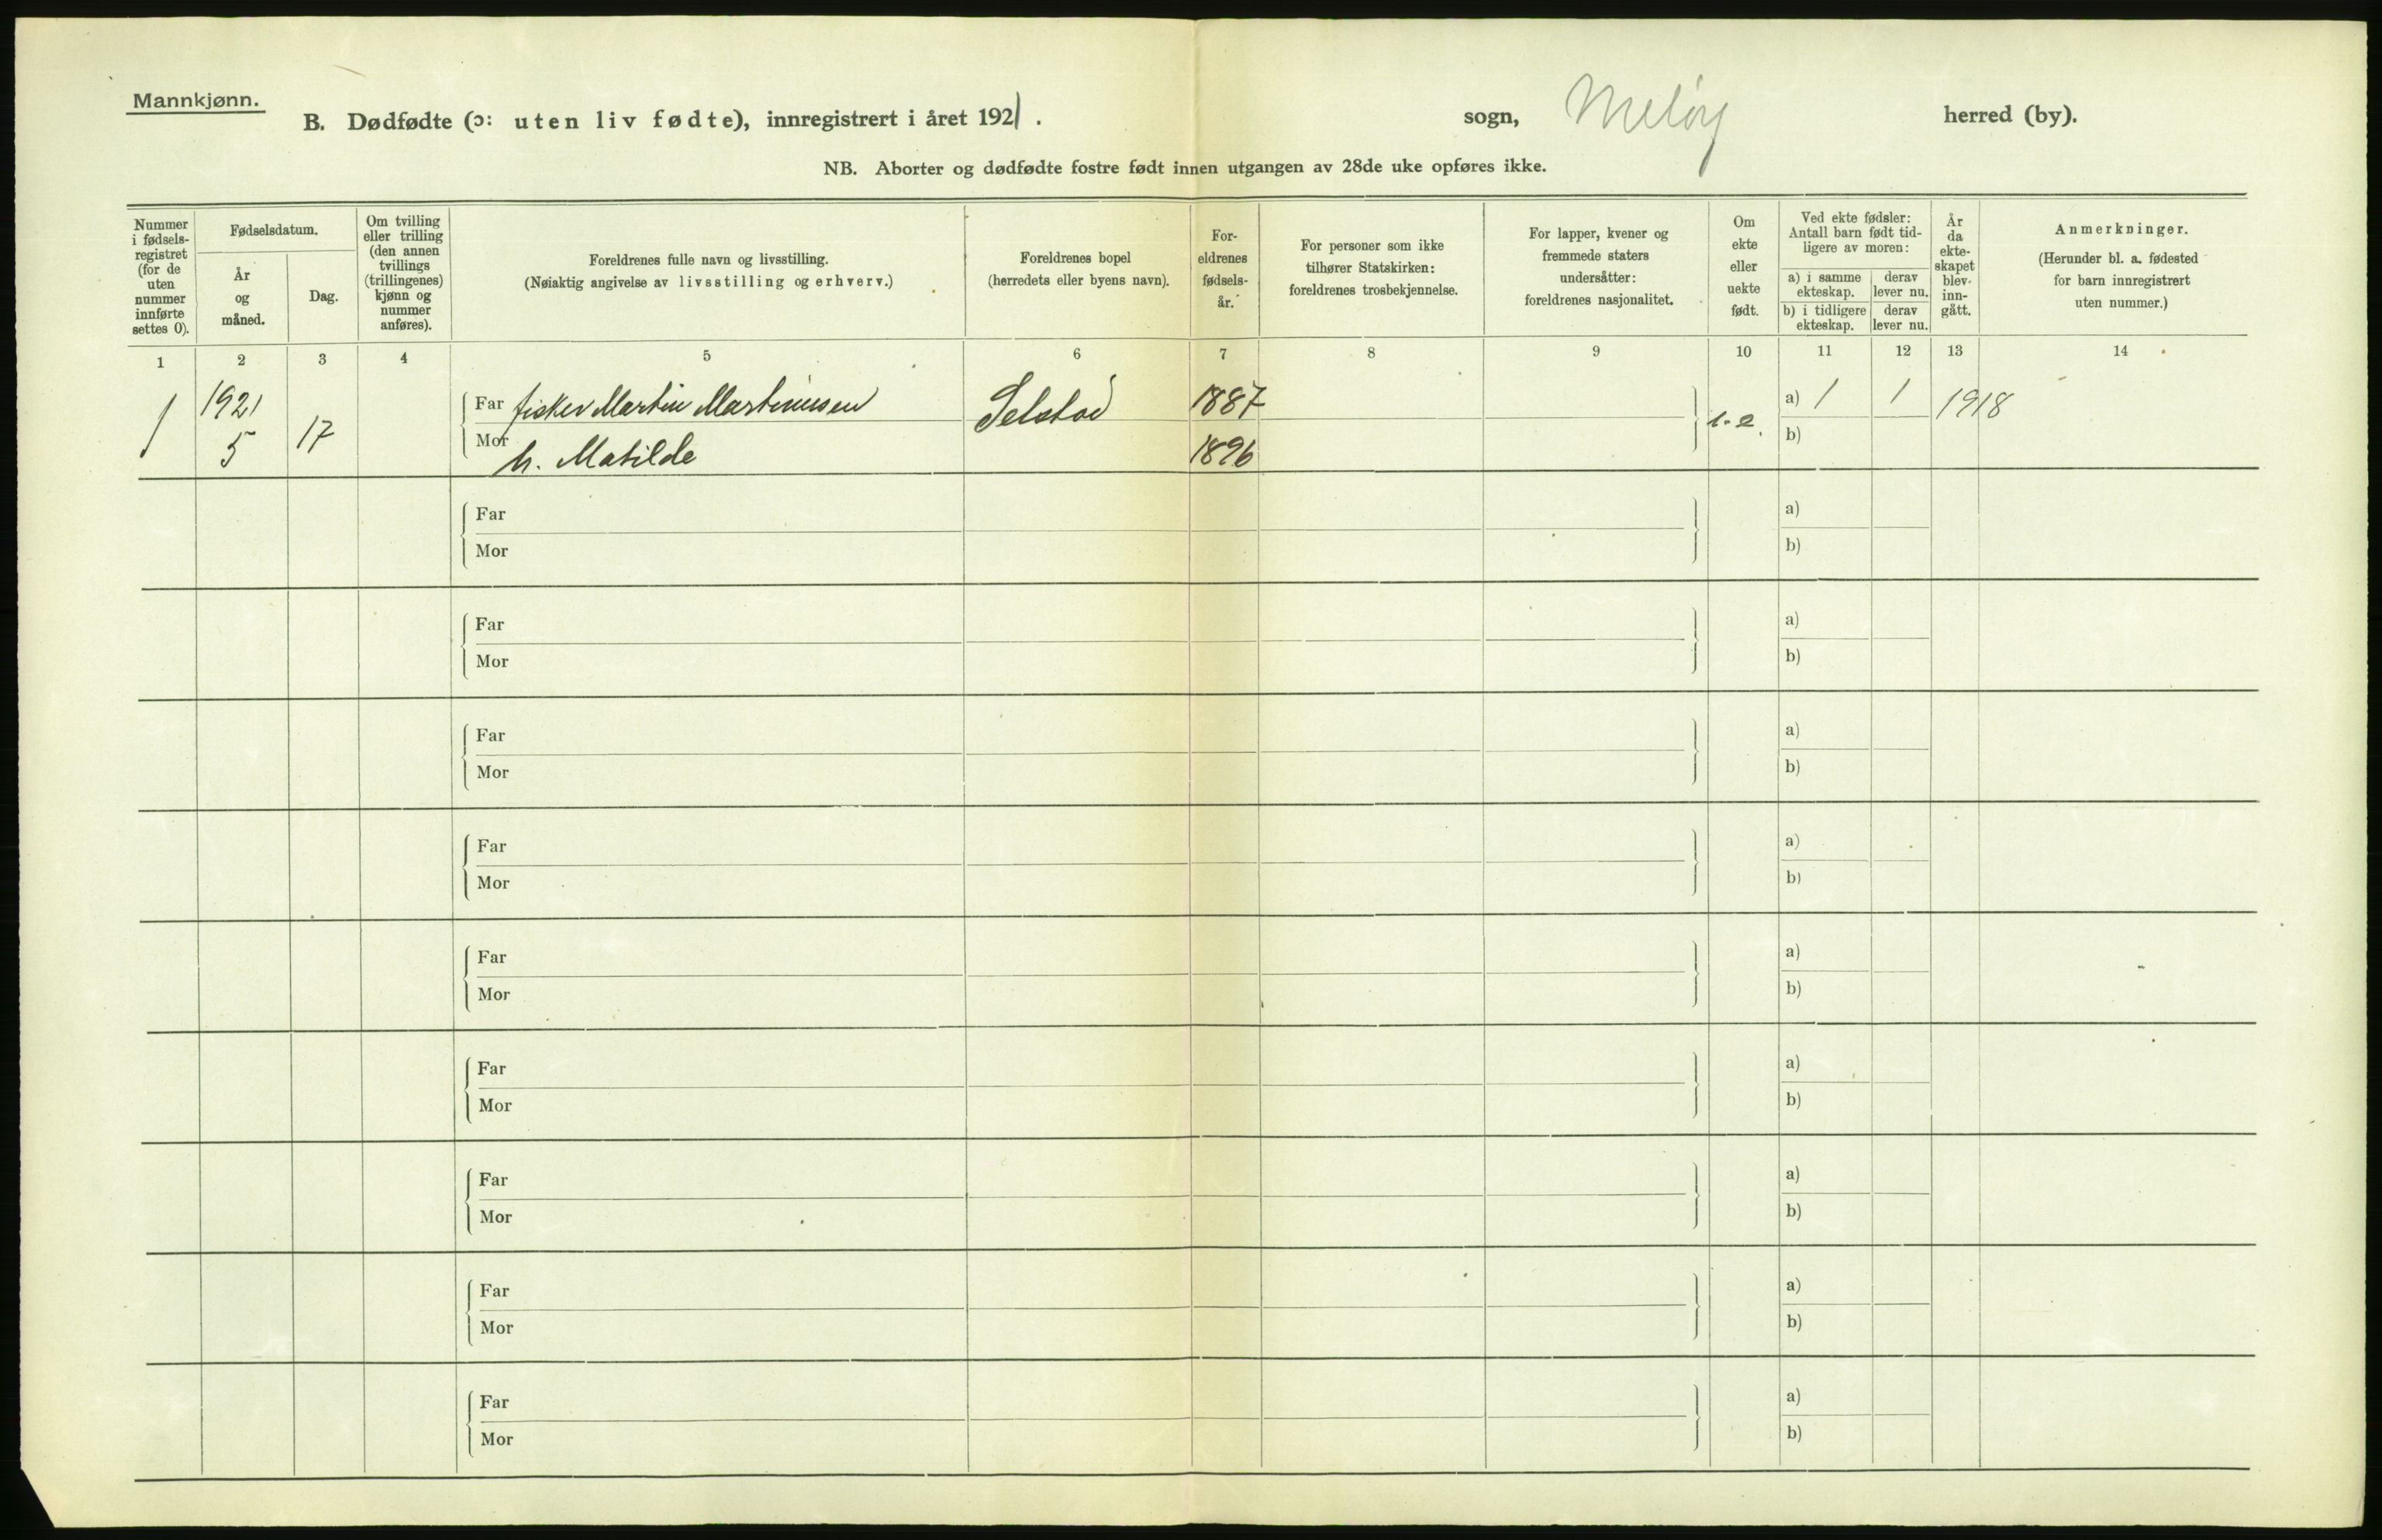 Mannkjønn.
B. Dødfødte (ɔ: uten liv fødte), innregistrert i året 1921. sogn, Meløy herred (by).
NB. Aborter og dødfødte fostre født innen utgangen av 28de uke opføres ikke.
Nummer i fødsels-registret (for de uten nummer innførte settes 0).
Fødselsdatum.
År og måned.
Dag.
Om tvilling eller trilling (den annen tvillings (trillingenes) kjønn og nummer anføres).
Foreldrenes fulle navn og livsstilling.
(Nøiaktig angivelse av livsstilling og erhverv.)
Foreldrenes bopel
(herredets eller byens navn).
For-eldrenes fødsels-år.
For personer som ikke tilhører Statskirken: foreldrenes trosbekjennelse.
For lapper, kvener og fremmede staters undersåtter: foreldrenes nasjonalitet.
Om ekte eller uekte født.
Ved ekte fødsler: Antall barn født tid-ligere av moren:
a) i samme ekteskap.
derav lever nu.
b) i tidligere ekteskap.
derav lever nu.
År da ekte-skapet blev inn-gått.
Anmerkninger.
(Herunder bl. a. fødested for barn innregistrert uten nummer.)
1 2 3 4 5 6 7 8 9 10 11 12 13 14
1 1921 5 17
Far fisker Martin Martinusen Selstad 1887 a) 1 1 1918
Mor h. Matilde 1896 b)
Far a)
Mor b)
Far a)
Mor b)
Far a)
Mor b)
Far a)
Mor b)
Far a)
Mor b)
Far a)
Mor b)
Far a)
Mor b)
Far a)
Mor b)
Far a)
Mor b)